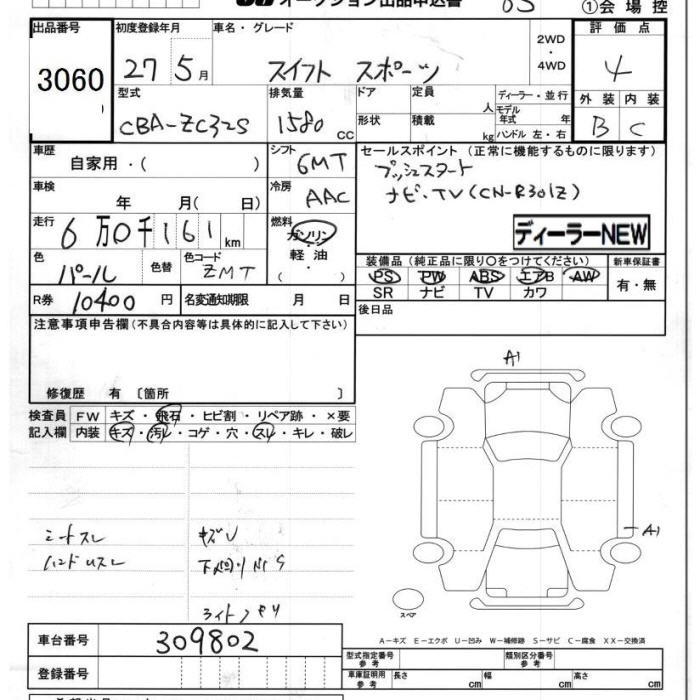 オークション出品申込書
①会場控
出品番号 初度登録年月 車名・グレード 2WD・4WD 評価点
3060 27年5月 スイフト スポーツ 4
型式 排気量 ドア 定員 人 ディーラー・並行 外装 内装
CBA-ZC32S 1580 CC 形状 積載 kg モデル年式 年 ハンドル 左・右 B C
車歴 自家用・( ) シフト 6MT セールスポイント(正常に機能するものに限ります)
プッシュスタート
車検 年 月( 日) 冷房 AAC ナビ・TV(CN-R301Z)
走行 6万0千161km 燃料 ガソリン・軽油・( ) ディーラーNEW
色 パール 色替 色コード ZMT 装備品(純正品に限り〇をつけてください) 新車保証書
PS PW ABS エアB AW 有・無
SR ナビ TV カワ
R券 10400円 名変通知期限 月 日 後日品
注意事項申告欄(不具合内容等は具体的に記入して下さい)
修復歴 有 〔箇所 〕
検査員記入欄 FW キズ・飛石・ヒビ割・リペア跡・×要
内装 キズ・汚レ・コゲ・穴・スレ・キレ・破レ
A1
A1
シートスレ キズU
ハンドルスレ 下回りサビS
ライトクモリ
スペア
A-キズ E-エクボ U-凹み W-補修跡 S-サビ C-腐食 XX-交換済
車台番号 309802
型式指定番号 参考 類別区分番号 参考
登録番号 車庫証明用 参考 長さ cm 幅 cm 高さ cm